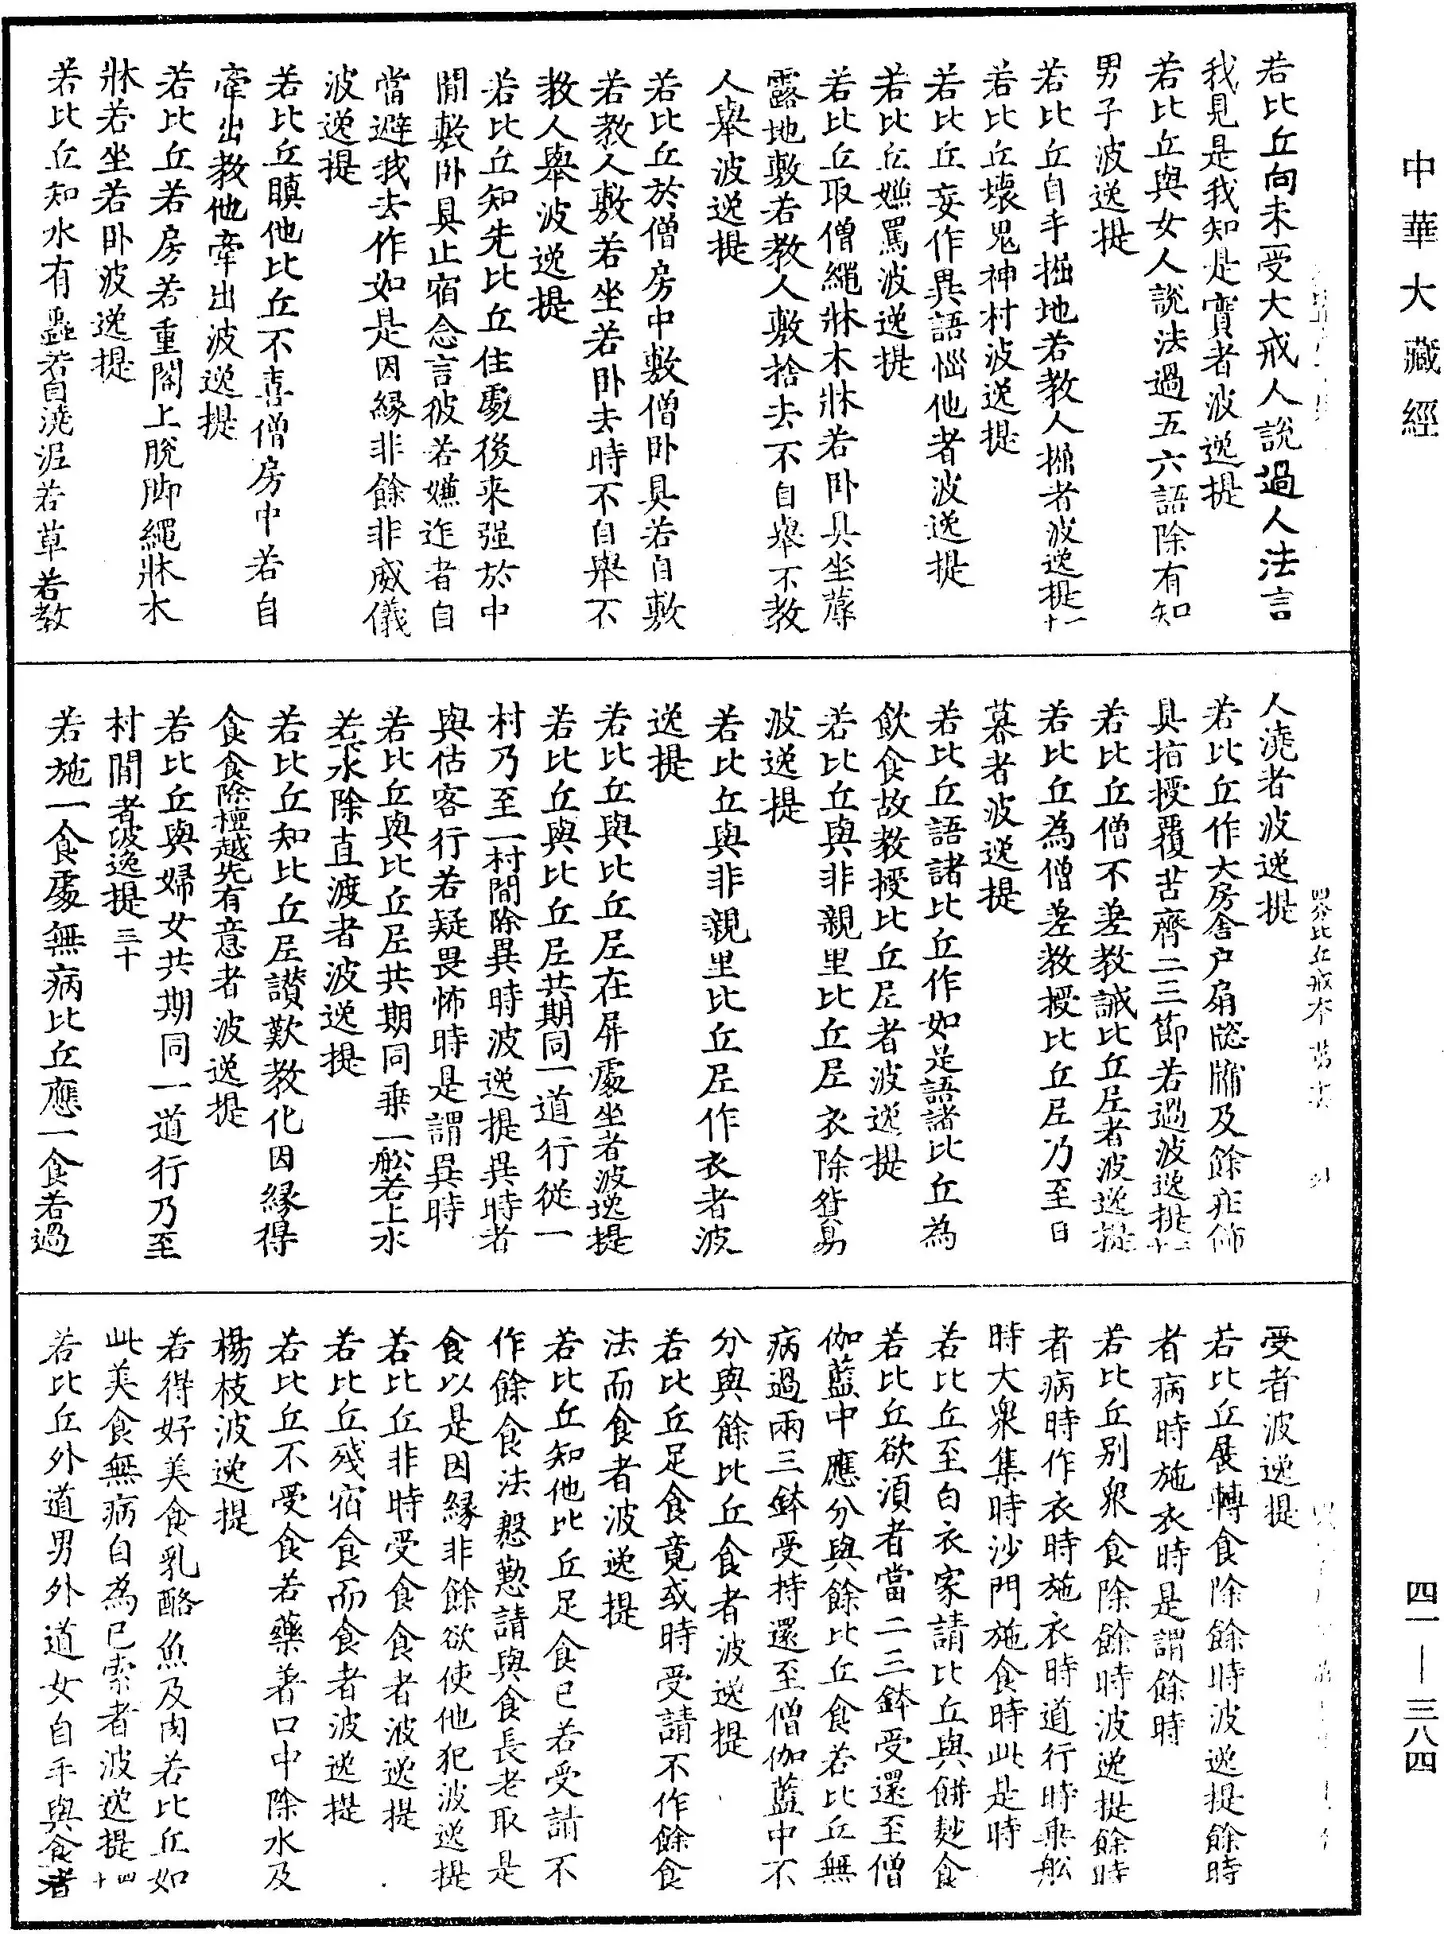 中華大藏經
若比丘向未受大戒人說過人法言
我見是我知是實者波逸提
若比丘與女人說法過五六語除有知
男子波逸提
若比丘自手掘地若教人掘者波逸提十一
若比丘壞鬼神村波逸提
若比丘妄作異語惱他者波逸提
若比丘嫌罵波逸提
若比丘取僧繩牀木牀若卧具坐蓐
露地敷若教人敷捨去不自舉不教
人舉波逸提
若比丘於僧房中敷僧卧具若自敷
若教人敷若坐若卧去時不自舉不
教人舉波逸提
若比丘知先比丘住處後来强於中
閒敷卧具止宿念言彼若嫌迮者自
當避我去作如是因緣非餘非威儀
波逸提
若比丘瞋他比丘不喜僧房中若自
牽出教他牽出波逸提
若比丘若房若重閣上脫脚繩牀木
牀若坐若卧波逸提
若比丘知水有蟲若自澆泥若草若教
人澆者波逸提
若比丘作大房舍户扇牎牖及餘莊飾
具指授覆苫齊二三節若過波逸提十二
若比丘僧不差教誡比丘尼者波逸提
若比丘為僧差教授比丘尼乃至日
暮者波逸提
若比丘語諸比丘作如是語諸比丘為
飲食故教授比丘尼者波逸提
若比丘與非親里比丘尼衣除貿易
波逸提
若比丘與非親里比丘尼作衣者波
逸提
若比丘與比丘尼在屏處坐者波逸提
若比丘與比丘尼共期同一道行從一
村乃至一村閒除異時波逸提異時者
與估客行若疑畏怖時是謂異時
若比丘與比丘尼共期同乗一舩若上水
若下水除直渡者波逸提
若比丘知比丘尼讃歎教化因緣得
食食除檀越先有意者波逸提
若比丘與婦女共期同一道行乃至
村閒者波逸提三十
若施一食處無病比丘應一食若過
四分比丘戒本
受者波逸提
若比丘展轉食除餘時波逸提餘時
者病時施衣時是謂餘時
若比丘別衆食除餘時波逸提餘時
者病時作衣時施衣時道行時乗舩
時大衆集時沙門施食時此是時
若比丘至白衣家請比丘與餅麨食
若比丘欲須者當二三鉢受還至僧
伽藍中應分與餘比丘食若比丘無
病過兩三鉢受持還至僧伽藍中不
分與餘比丘食者波逸提
若比丘足食竟或時受請不作餘食
法而食者波逸提
若比丘知他比丘足食已若受請不
作餘食法慇懃請與食長老取是
食以是因緣非餘欲使他犯波逸提
若比丘非時受食食者波逸提
若比丘殘宿食而食者波逸提
若比丘不受食若藥著口中除水及
楊枝波逸提
若得好美食乳酪魚及肉若比丘如
此美食無病自為已索者波逸提四十
若比丘外道男外道女自手與食者
四一—三八四